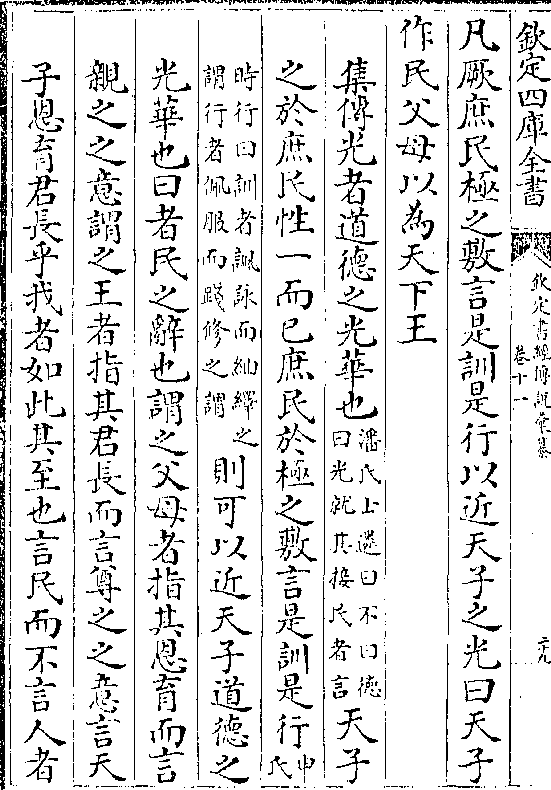 欽定四庫全書
欽定書經傳說彙纂
卷十一
凡厥庶民極之敷言是訓是行以近天子之光曰天子
作民父母以為天下王
集傳光者道德之光華也潘氏士遴曰不曰德曰光就其接民者言天子
之於庶民性一而已庶民於極之敷言是訓是行申氏
時行曰訓者諷詠而紬繹之謂行者佩服而踐修之謂則可以近天子道德之
光華也曰者民之辭也謂之父母者指其恩育而言
親之之意謂之王者指其君長而言尊之之意言天
子恩育君長乎我者如此其至也言民而不言人者